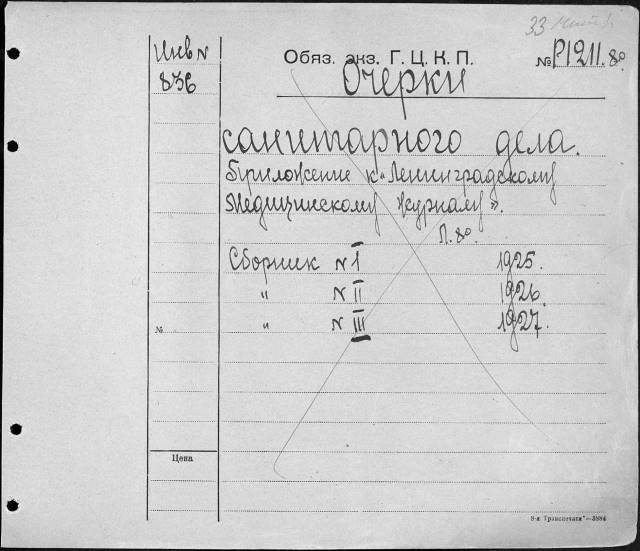 33
Инв N
836
Обяз. экз. Г. Ц. К. П.
№ Р1211.8º
Очерки
санитарного дела.
Приложение к „Ленинградскому
Медицинскому журналу".
Л. 8º.
Сборник N I 1925.
" N II 1926.
" N III 1927.
№
Цена
8-я „Транспечати"—3884